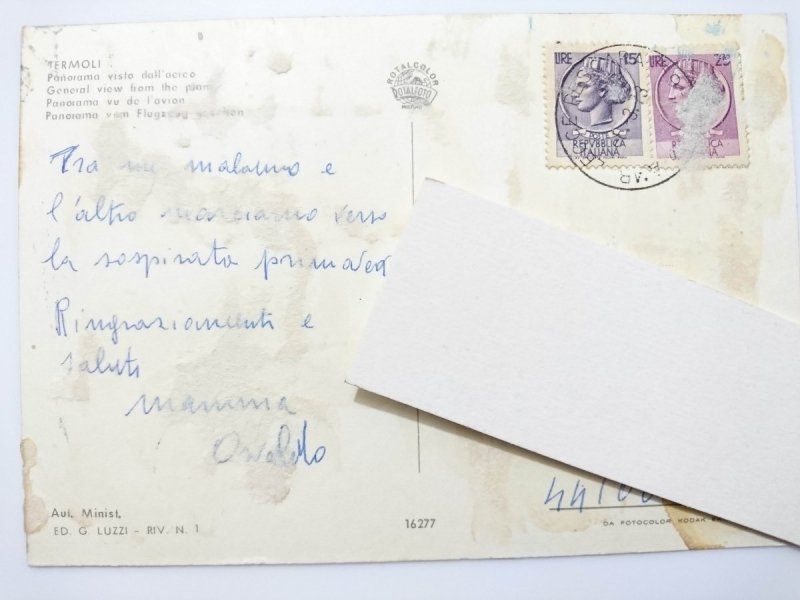 TERMOLI
Panorama visto dall'aereo
General view from the plane
Panorama vu de l'avion
Panorama vom Flugzeug gesehen
ROTALCOLOR
ROTALFOTO
MILANO
LIRE 15
LIRE 25
POSTE
REPVBBLICA
ITALIANA
REPVBBLICA
ITALIANA
Tra un malanno e
l'altro marciamo verso
la sospirata primavera
Ringraziamenti e
saluti
mamma
Osvaldo
44100
Aut. Minist.
ED. G. LUZZI - RIV. N. 1
16277
DA FOTOCOLOR KODAK